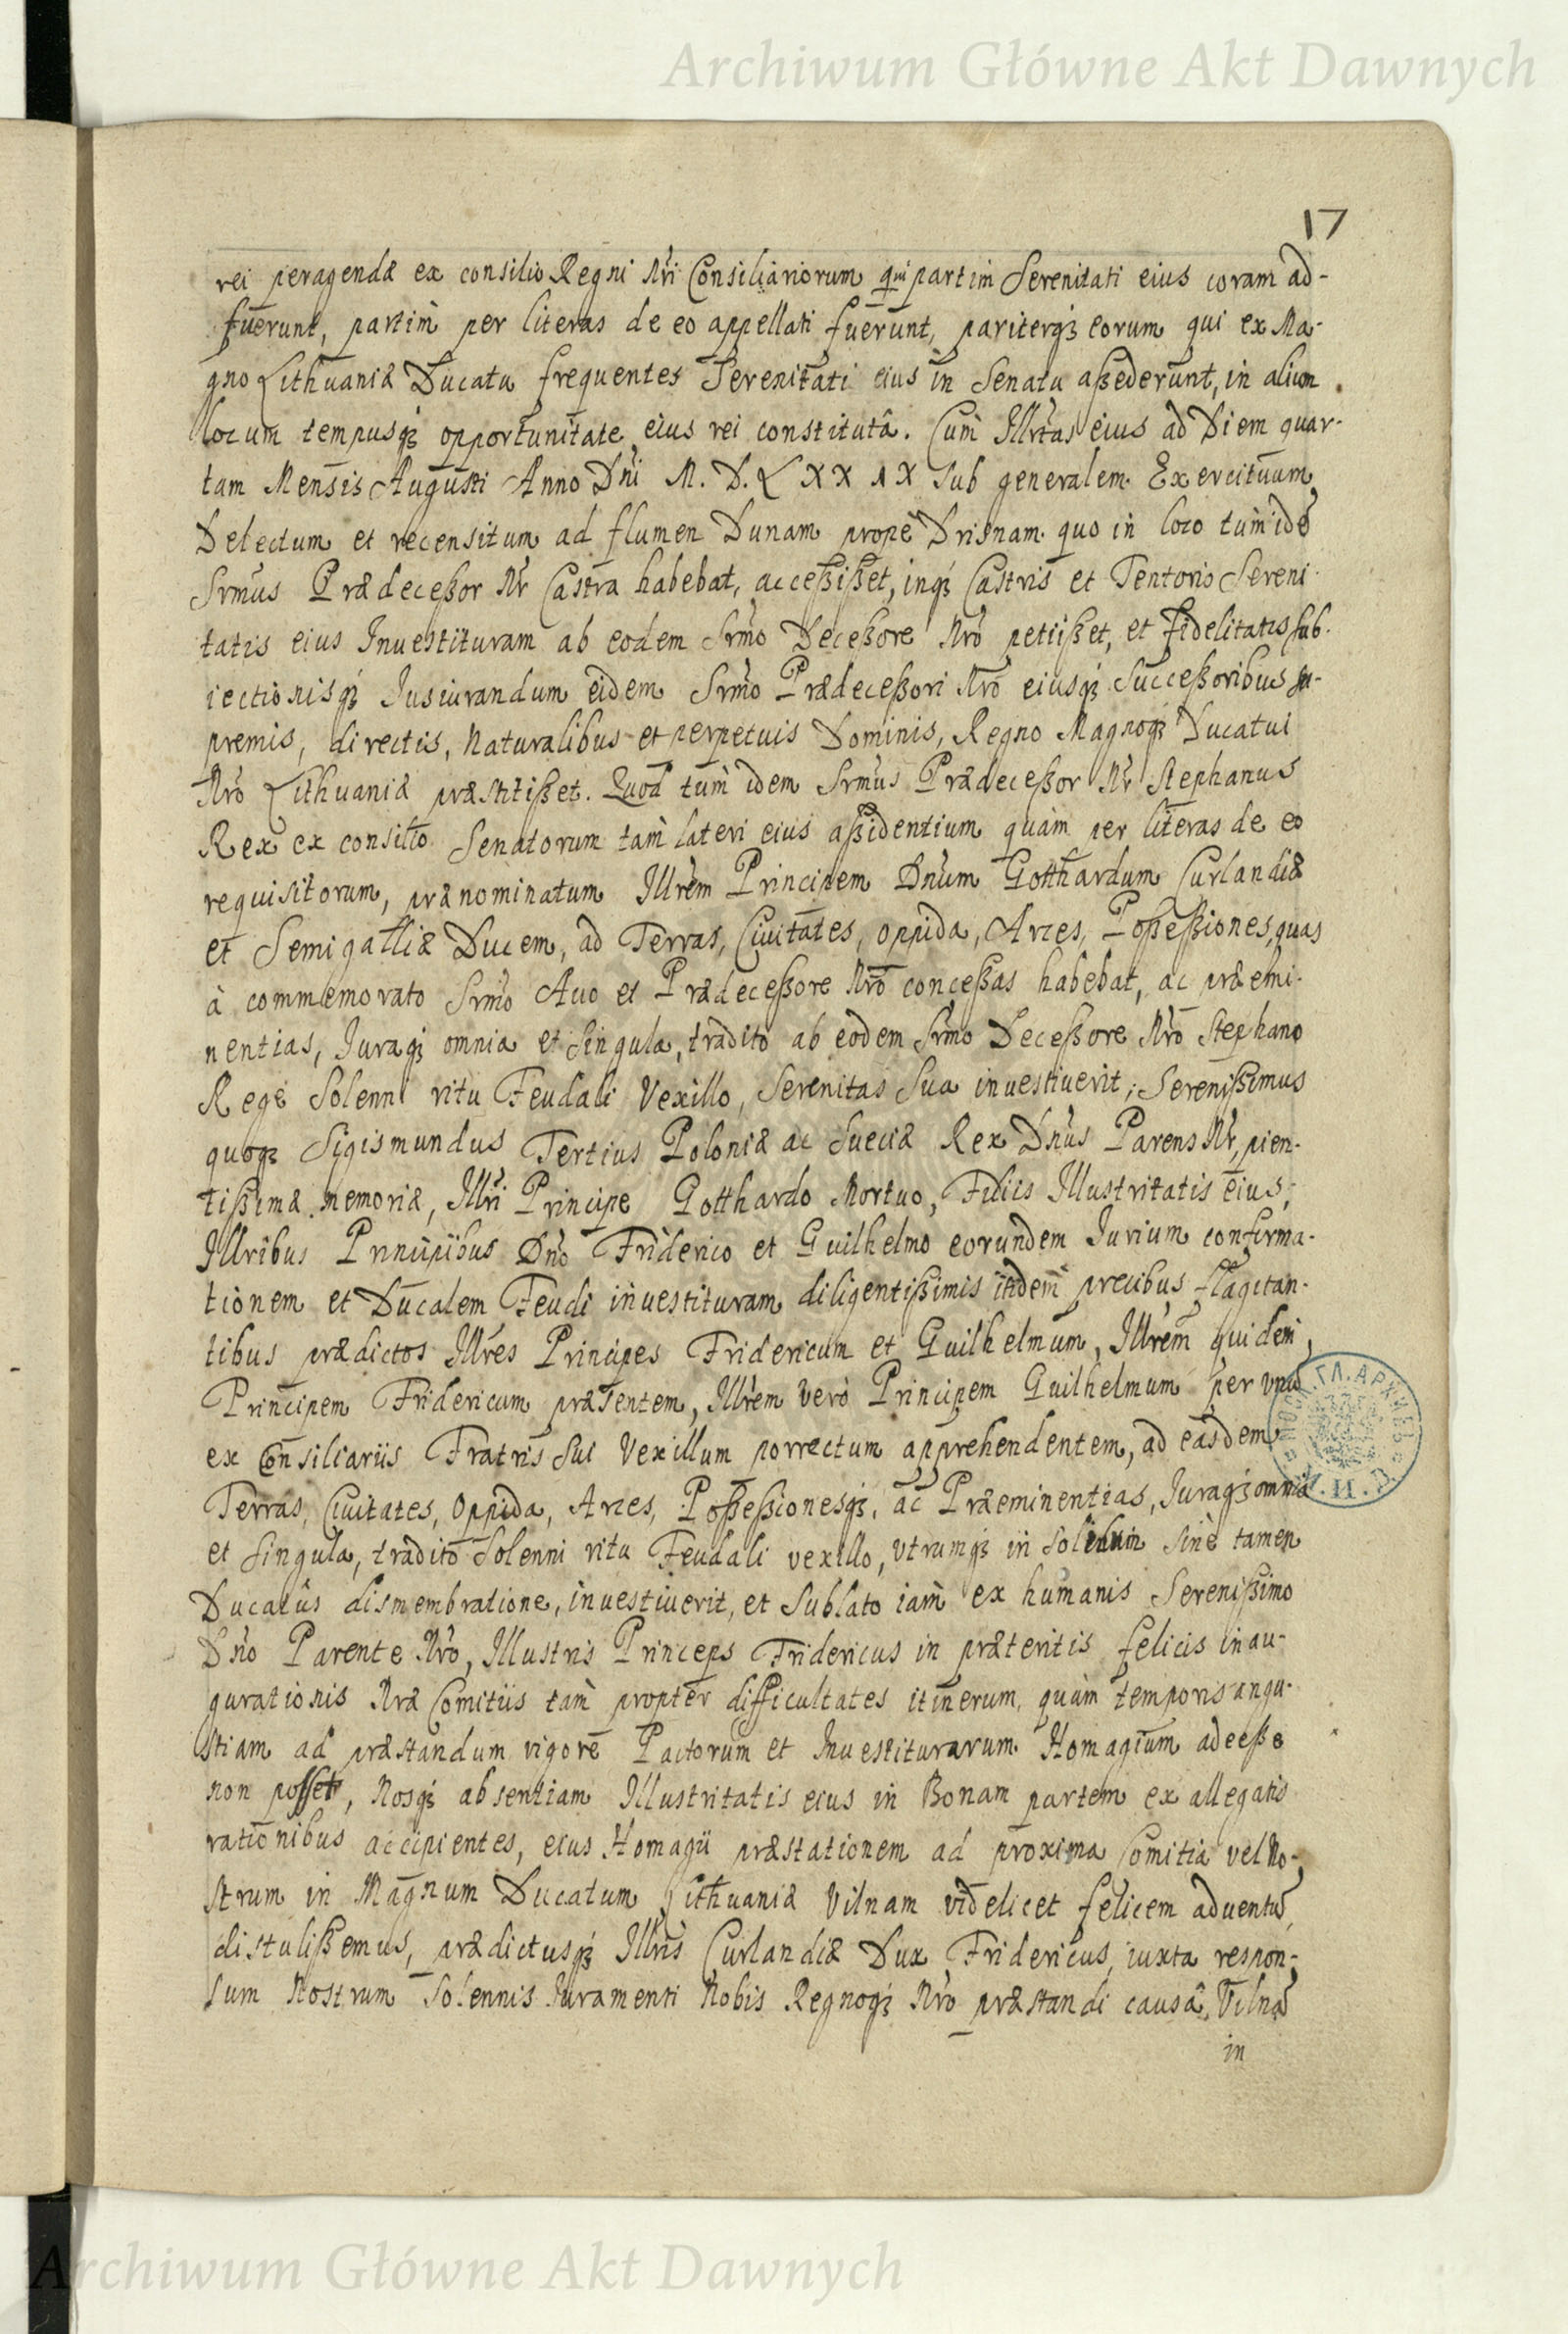 Archiwum Główne Akt Dawnych
17
rei peragendæ ex consilio Regni Nri Consiliariorum qui partim Serenitati eius coram ad-
fuerunt, partim per literas de eo appellati fuerunt, pariterq3 eorum qui ex Ma-
gno Lithuaniæ Ducatu frequentes Serenitati eius in Senatu aßederunt, in alium
locum tempusq3 opportunitate eius rei constitutâ. Cum Illrtas eius ad Diem quar-
tam Mensis Augusti Anno Dni M. D. L X X I X sub generalem Exercituum
Delectum et recensitum ad flumen Dunam prope Drisnam quo in loco tum idē
Srmus Prædeceßor Nr Castra habebat, acceßißet, inq3 Castris et Tentorio Sereni-
tatis eius Inuestituram ab eodem Srmo Deceßore Nro petiißet, et fidelitatis sub-
iectionisq3 Iusiurandum eidem Srmo Prædeceßori Nro eiusq3 Succeßoribus su-
premis, directis, Naturalibus et perpetuis Dominis, Regno Magnoq3 Ducatui
Nro Lithuaniæ præstitißet. Quod tum idem Srmus Prædeceßor Nr Stephanus
Rex ex consilio Senatorum tam lateri eius aßidentium quàm per literas de eo
requisitorum, prænominatum Illrem Principem Dnum Gotthardum Curlandiæ
et Semigalliæ Ducem, ad Terras, Ciuitates, oppida, Arces, Poßeßiones, quas
à commemorato Srmo Auo et Prædeceßore Nro conceßas habebat, ac præemi-
nentias, Iuraq3 omnia et singula, tradito ab eodem Srmo Deceßore Nro Stephano
Rege solenni ritu Feudali Vexillo, Serenitas Sua inuestiuerit; Serenißimus
quoq3 Sigismundus Tertius Poloniæ ac Sueciæ Rex Dnus Parens Nr, pien-
tißimæ memoriæ, Illri Principe Gotthardo Mortuo, Filiis Illustritatis eius,
Illribus Principibus Dno Friderico et Guilhelmo eorundem Iurium confirma-
tionem et Ducalem Feudi inuestituram diligentißimis itidem precibus flagitan-
tibus prædictos Illres Principes Fridericum et Guilhelmum, Illrem quidem
Principem Fridericum præsentem, Illrem verò Principem Guilhelmum per vnū
ex Consiliariis Fratris sui Vexillum porrectum apprehendentem, ad easdem
Terras, Ciuitates, Oppida, Arces, Poßeßionesq3, ac Præeminentias, Iuraq3 omnia
et singula, tradito solenni ritu Feudali vexillo, vtrumq3 in solidum sine tamen
Ducatûs dismembratione, inuestiuerit, et sublato iam ex humanis Sereniẞimo
Dno Parente Nro, Illustris Princeps Fridericus in præteritis felicis inau-
gurationis Nræ Comitiis tam propter difficultates itinerum, quàm temporis angu-
stiam ad præstandum vigore Pactorum et Inuestiturarum Homagium adeeße
non posset, Nosq3 absentiam Illustritatis eius in Bonam partem ex allegatis
rationibus accipientes, eius Homagii præstationem ad proxima Comitia vel No-
strum in Magnum Ducatum Lithuaniæ Vilnam videlicet felicem aduentū
distulißemus, prædictusq3 Illris Curlandiæ Dux Fridericus, iuxta respon-
sum Nostrum solennis Iuramenti Nobis Regnoq3 Nro præstandi causâ, Vilnā
in
Archiwum Główne Akt Dawnych